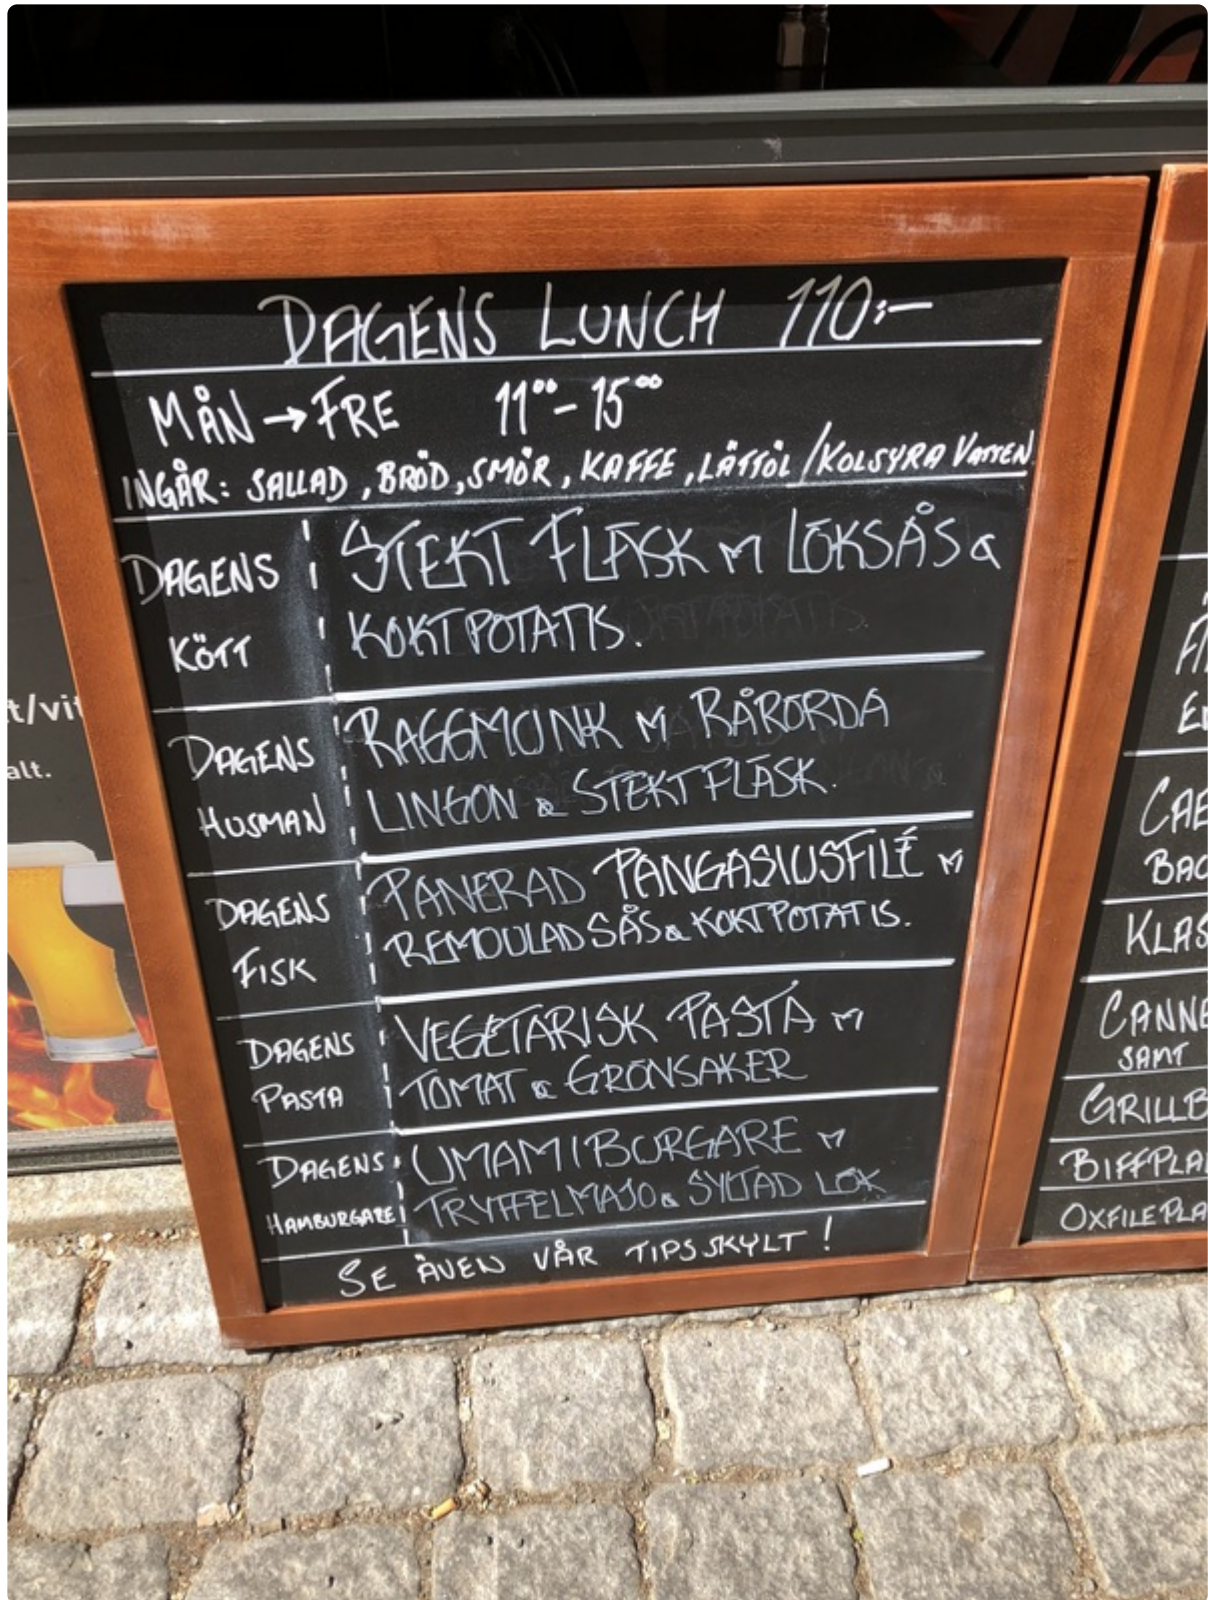 DAGENS LUNCH 110:-
MÅN → FRE 11⁰⁰-15⁰⁰
INGÅR: SALLAD, BRÖD, SMÖR, KAFFE, LÄTTÖL/KOLSYRA VATTEN
DAGENS
KÖTT
STEKT FLÄSK M LÖKSÅS &
KOKT POTATIS.
DAGENS
HUSMAN
RAGGMUNK M RÅRÖRDA
LINGON & STEKT FLÄSK.
DAGENS
FISK
PANERAD PANGASIUSFILÉ M
REMOULADSÅS & KOKT POTATIS.
DAGENS
PASTA
VEGETARISK PASTA M
TOMAT & GRÖNSAKER
DAGENS
HAMBURGARE
UMAMIBURGARE M
TRYFFELMAJO & SYLTAD LÖK
SE ÄVEN VÅR TIPSSKYLT!
t/vit
alt.
CAE
BAC
KLAS
CANNE
SAMT
GRILLB
BIFFPLA
OXFILEPLA